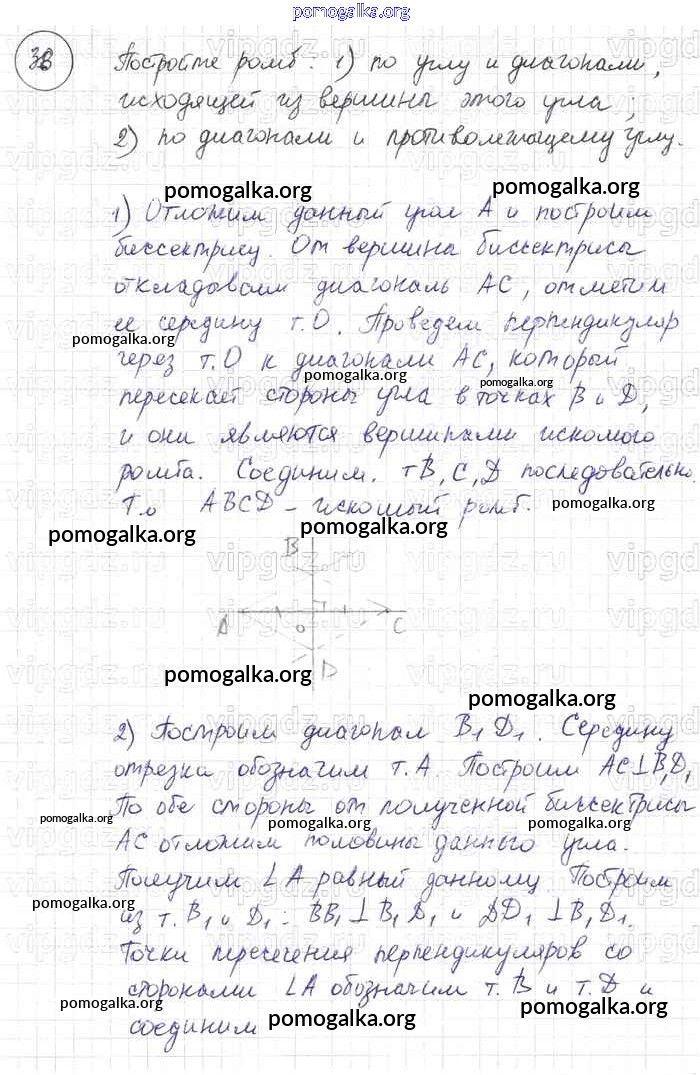 pomogalka.org
38 Постройте ромб: 1) по углу и диагонали,
исходящей из вершины этого угла;
2) по диагонали и противолежащему углу.
pomogalka.org pomogalka.org
1) Отложим данный угол А и построим
биссектрису. От вершины биссектрисы
откладоваем диагональ АС, отметим
ее середину т.О. Проведем перпендикуляр
pomogalka.org
через т.О к диагонали АС, который
pomogalka.org pomogalka.org
пересекает стороны угла в точках В и D,
и они являются вершинами искомого
ромба. Соединим. тВ, С, D последовательно.
Т.о ABCD - искомый ромб.
pomogalka.org
pomogalka.org pomogalka.org
B
A O C
D
pomogalka.org
pomogalka.org
2) Построим диагонал B₁D₁. Середину
отрезка обозначим т.А. Построим АС⊥B₁D₁
По обе стороны от полученной биссектрисы
pomogalka.org pomogalka.org pomogalka.org
АС отложим половины данного угла.
Получим ∠А равный данному. Построим
pomogalka.org pomogalka.org
из т.B₁ и D₁: BB₁⊥B₁D₁ и DD₁⊥B₁D₁.
Точки пересечения перпендикуляров со
сторонами ∠А обозначим т.В и т.D и
pomogalka.org pomogalka.org
соединим
pomogalka.org